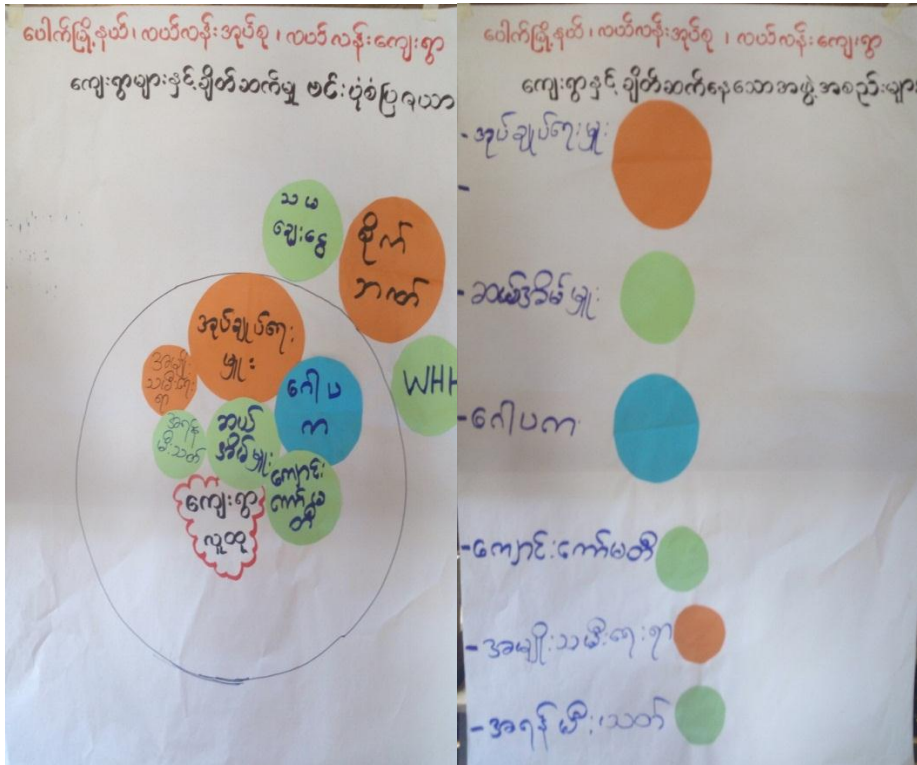 ပေါက်မြို့နယ်၊ လယ်လန်းအုပ်စု ၊ လယ်လန်းကျေးရွာ
ကျေးရွာများနှင့်ချိတ်ဆက်မှု ဗင်းပုံစံပြဇယာ
သမ
ချေးငွေ
စိုက်
ဘဏ်
အုပ်ချုပ်ရေး
မှူး
အမျိုး
သမီးရေး
ရာ
ဂေါပ
က
WHH
အရန်
မီးသတ်
ဆယ်
အိမ်မှူး
ကျောင်း
ကော်မ
တီ
ကျေးရွာ
လူထု
ပေါက်မြို့နယ်၊ လယ်လန်းအုပ်စု ၊ လယ်လန်းကျေးရွာ
ကျေးရွာနှင့်ချိတ်ဆက်နေသောအဖွဲ့အစည်းများ
- အုပ်ချုပ်ရေးမှူး
-
- ဆယ်အိမ်မှူး
- ဂေါပက
- ကျောင်းကော်မတီ
- အမျိုးသမီးရေးရာ
- အရန်မီးသတ်